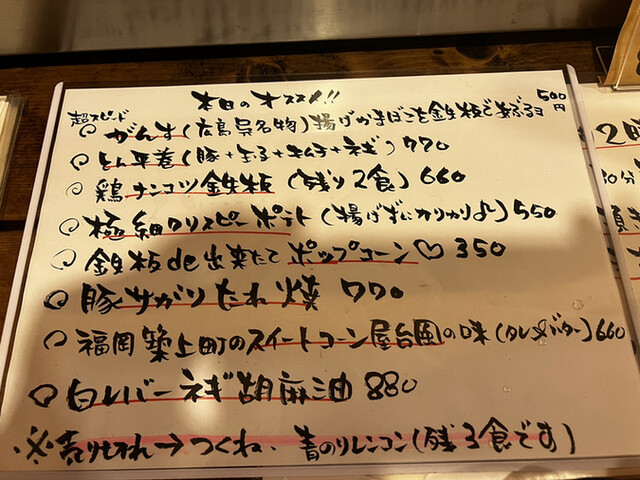 本日のオススメ!!
超スピード
がんす(広島県名物)揚げかまぼこを鉄板であぶるヨ 500円
とん平巻(豚+玉子+キムチ+ネギ)770
鶏ナンコツ鉄板(残り2食)660
極細クリスピーポテト(揚げずにカリカリ♪)550
鉄板de出来たてポップコーン♡ 350
豚サガリたれ焼 770
福岡築上町のスイートコーン屋台風の味(タレ×バター)660
白レバーネギ胡麻油 880
※売り切れ→つくね、青のりレンコン(残3食です)